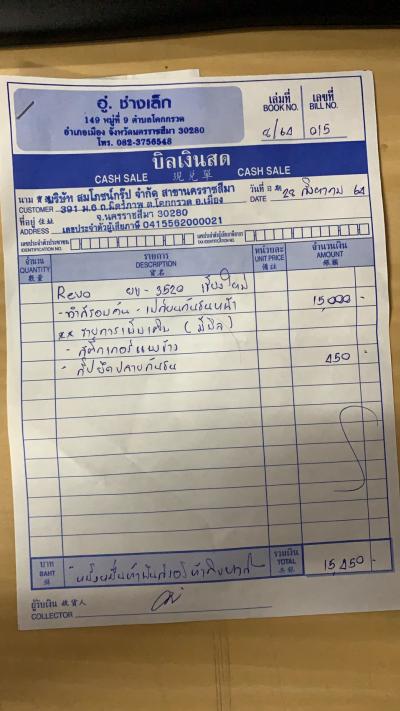 อู่ ช่างเล็ก
149 หมู่ที่ 9 ตำบลโคกกรวด
อำเภอเมือง จังหวัดนครราชสีมา 30280
โทร. 082-3756548
เล่มที่ BOOK NO. 2/64
เลขที่ BILL NO. 015
บิลเงินสด
CASH SALE 現兌單 CASH SALE
นาม บริษัท สมโภชน์กรุ๊ป จำกัด สาขานครราชสีมา
CUSTOMER 391 ม.6 ถ.มิตรภาพ ต.โคกกรวด อ.เมือง
วันที่ DATE 22 กันยายน 64
ที่อยู่ 住址 จ.นครราชสีมา 30280
ADDRESS เลขประจำตัวผู้เสียภาษี 0415562000021
เลขประจำตัวประชาชน
IDENTIFICATION NO.
เลขประจำตัวผู้เสียภาษีอากร
จำนวน รายการ หน่วยละ จำนวนเงิน
QUANTITY DESCRIPTION UNIT PRICE AMOUNT
數量 貨名 備註 銀額
Revo ยข - 3520 เชียงใหม่
- ทำสีรอบคัน - เปลี่ยนกันชนหน้า 15,000 -
** รายการเพิ่มเติม ( มีบิล )
- สติ๊กเกอร์แผงข้าง
- กิ๊ปยึดปลายกันชน 450 -
บาท BAHT หนึ่งหมื่นห้าพันสี่ร้อยห้าสิบบาท
รวมเงิน TOTAL 15,450 -
ผู้รับเงิน 收貨人
COLLECTOR